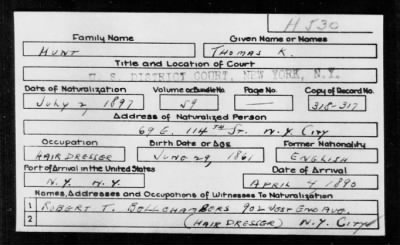 H530
Family Name
Given Name or Names
HUNT
THOMAS K.
Title and Location of Court
U. S. DISTRICT COURT, NEW YORK, N.Y.
Date of Naturalization
Volume or Bundle No.
Page No.
Copy of Record No.
JULY 2, 1897
59
—
318-317
Address of Naturalized Person
69 E. 114TH ST. N.Y. CITY
Occupation
Birth Date or Age
Former Nationality
HAIR DRESSER
JUNE 29, 1861
ENGLISH
Port of Arrival in the United States
Date of Arrival
N.Y. N.Y.
APRIL 4, 1890
Names, Addresses and Occupations of Witnesses To Naturalization
1 ROBERT T. BELLCHAMBERS 902 WEST END AVE.
2 (HAIR DRESSER) N.Y. CITY